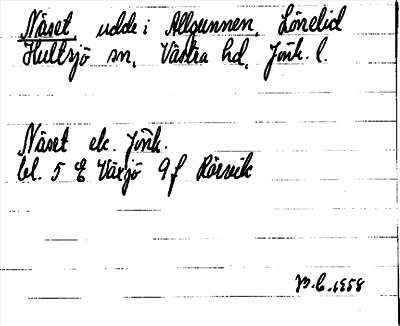 Näset, udde i Allgunnen, Lönelid
Hultsjö sn, Västra hd, Jönk. l.
Näset ek. Jönk.
bl. 5 E Växjö 9 f Rörvik
B.C. 1958